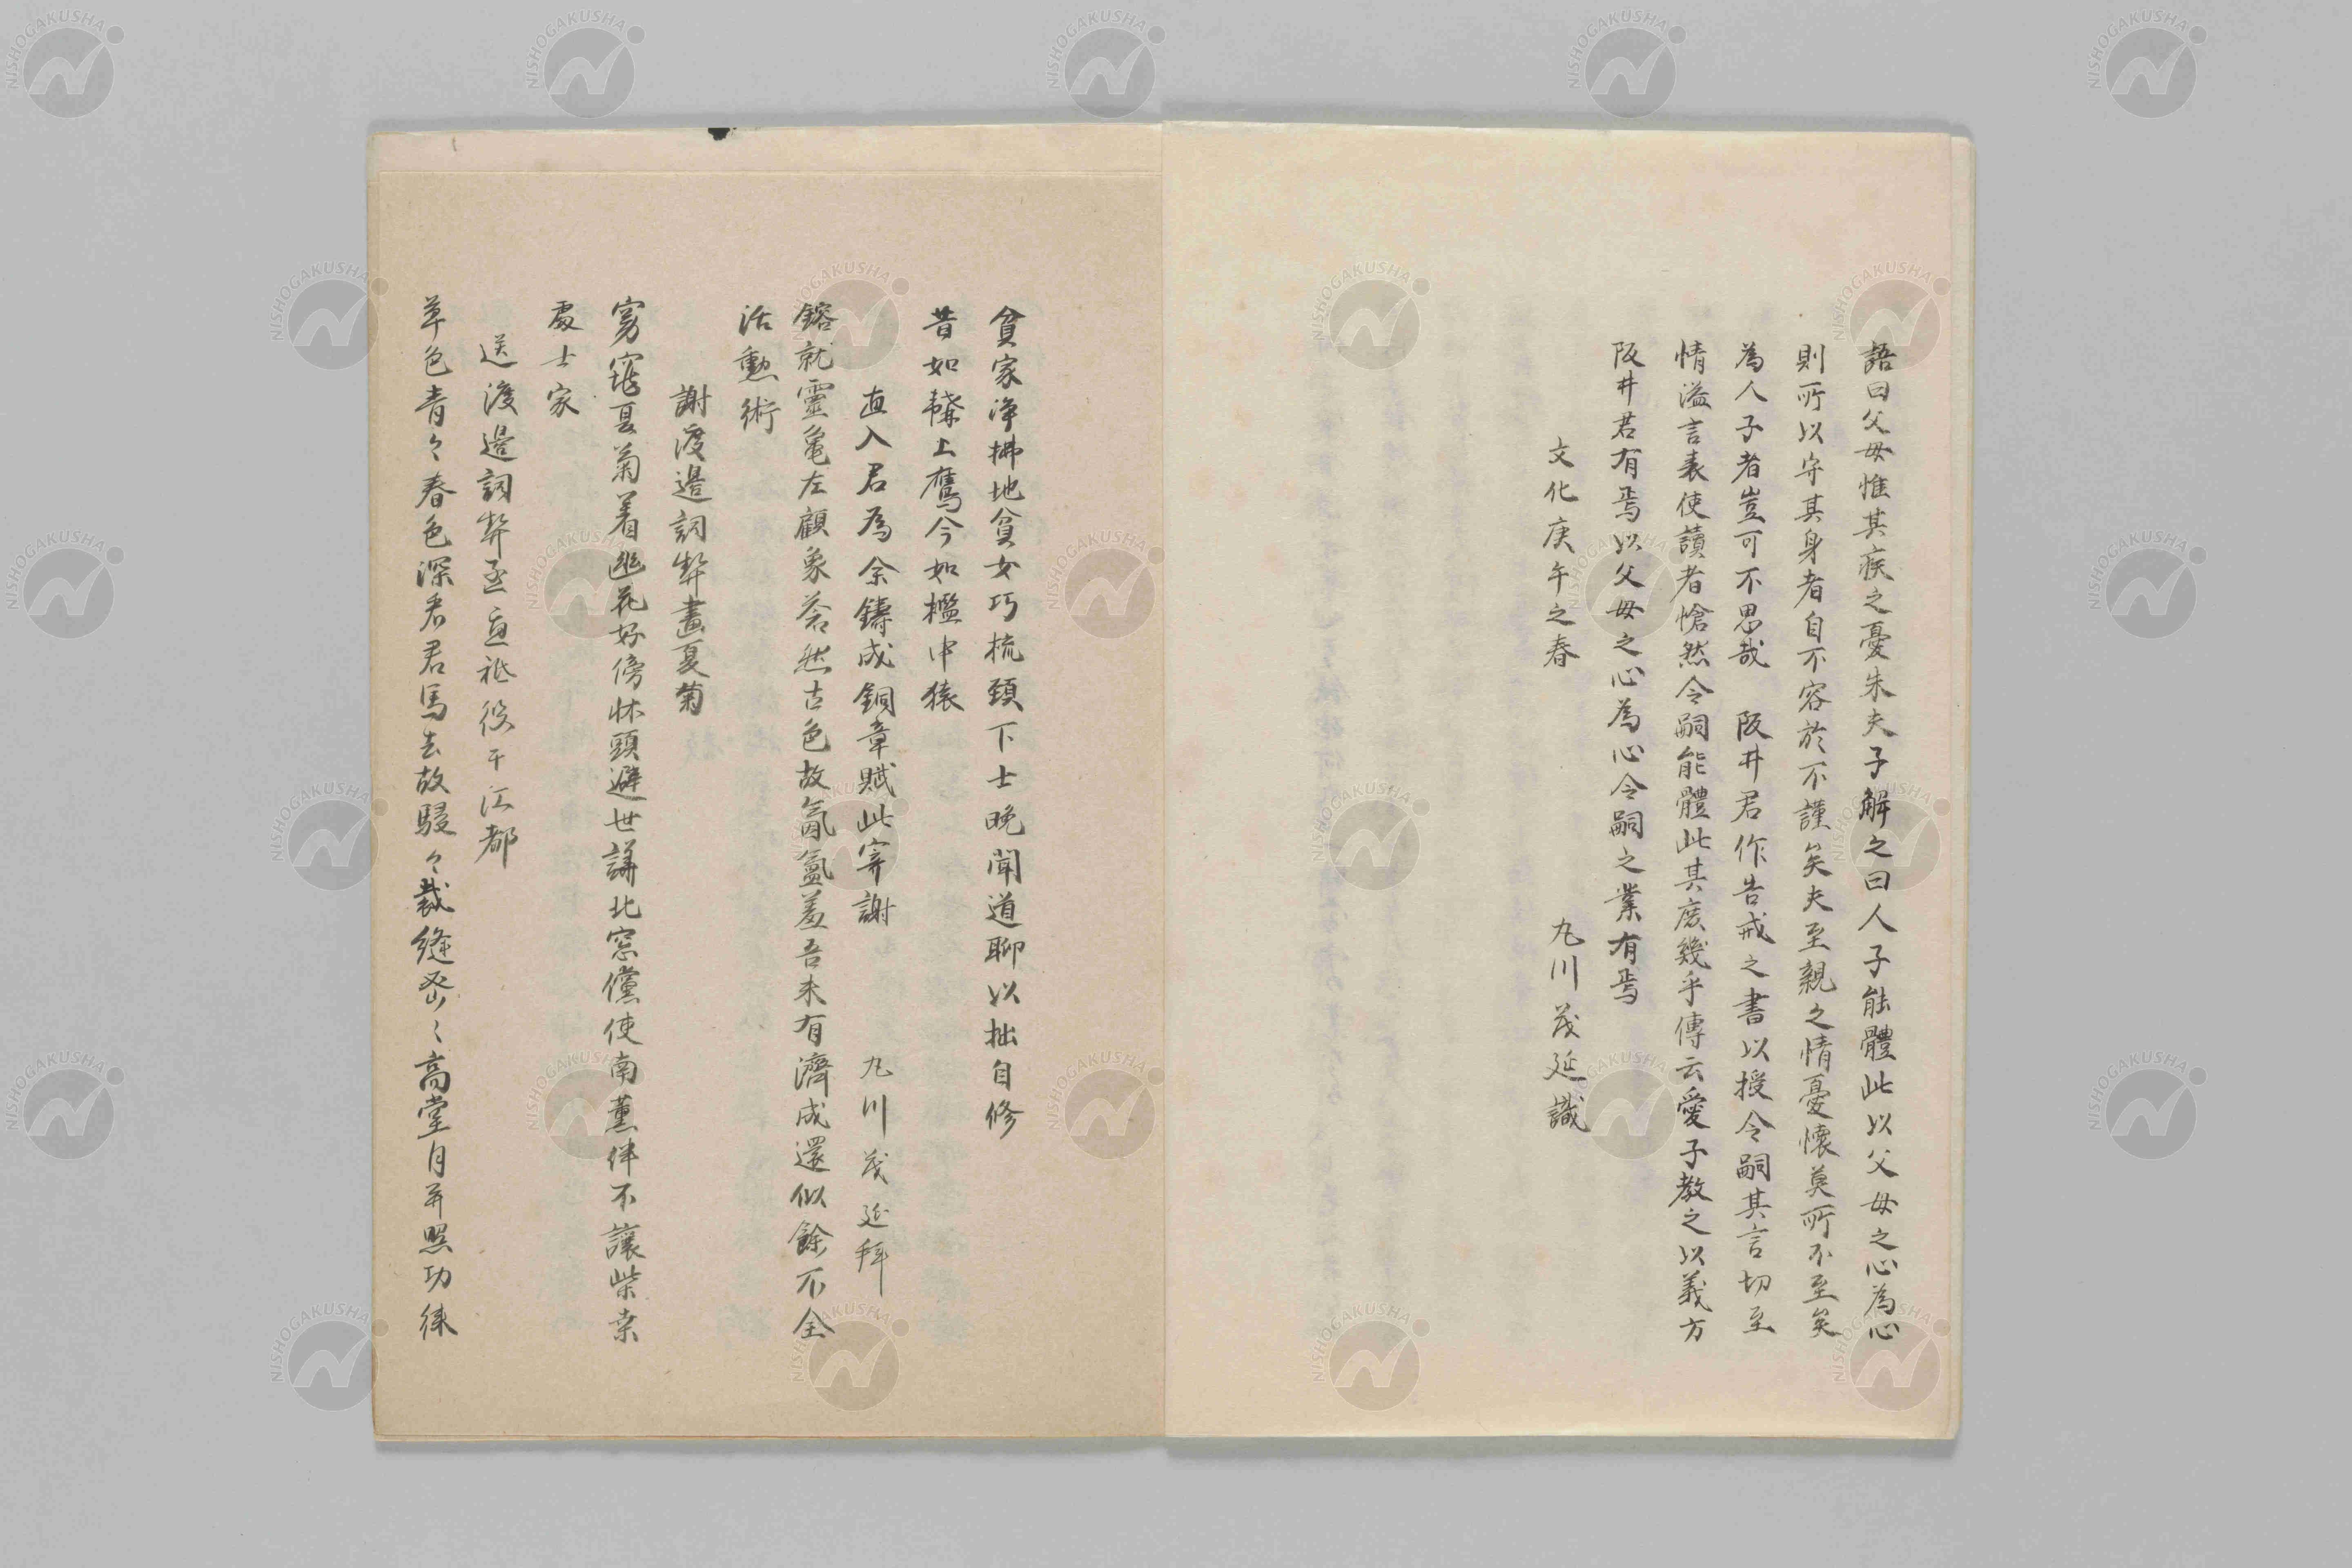 語曰父母惟其疾之憂朱夫子解之曰人子能體此以父母之心為心
則所以守其身者自不容於不謹矣夫至親之情憂懷莫所不至矣
為人子者豈可不思哉 阪井君作告戒之書以授令嗣其言切至
情溢言表使讀者愴然令嗣能體此其庶幾乎傳云愛子教之以義方
阪井君有焉以父母之心為心令嗣之業有焉
文化庚午之春 九川茂延識
貧家淨拂地貧女巧梳頭下士晩聞道聊以拙自修
昔如韝上鷹今如檻中猿
直入君為余鑄成銅章賦此寄謝 九川茂延拜
鎔就靈亀左顧象蒼然古色故氤氳羞吾未有濟成還似餘不全
活動術
謝渡邉詞契畫夏菊
窮窟夏菊着幽花好傍牀頭避世譁北窓儻使南薫伴不讓柴桒
處士家
送渡邉詞契丞直祗役于江都
草色青々春色深看君馬去故駸々裁縫密〻高堂月并照功徠
NISHOGAKUSHA